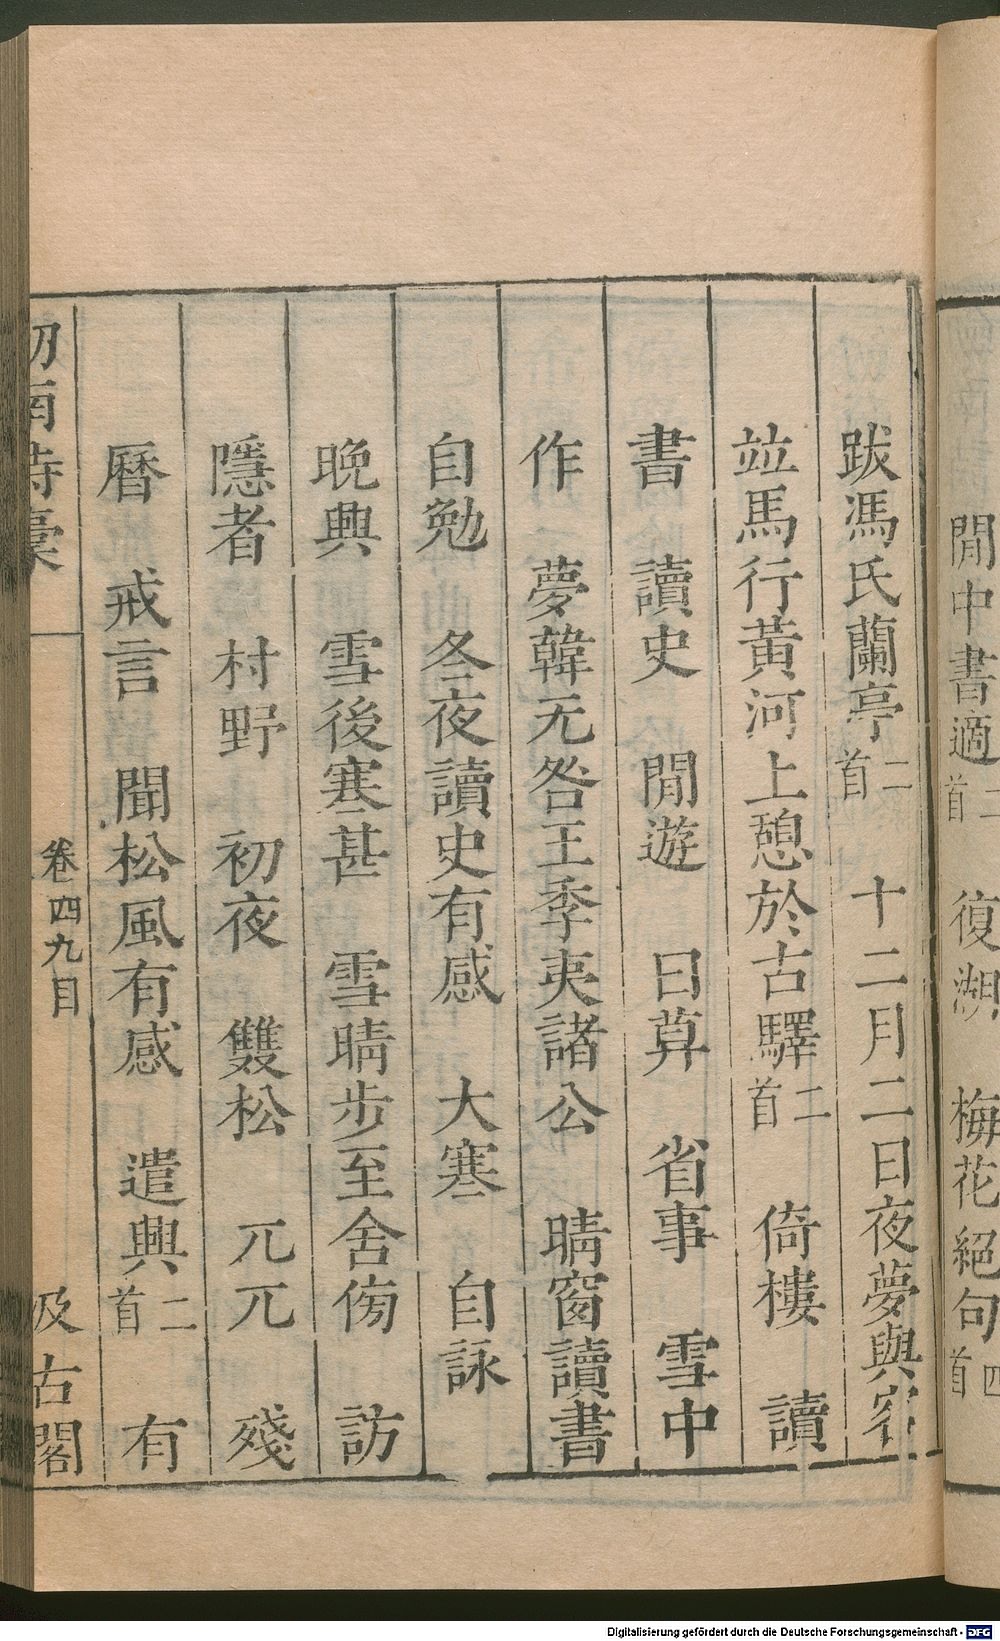 閒中書適二首　復湖　梅花絕句四首
跋馮氏蘭亭二首　十二月二日夜夢與客
竝馬行黃河上憩於古驛二首　倚樓　讀
書　讀史　閒遊　日算　省事　雪中
作　夢韓无咎王季夷諸公　晴窗讀書
自勉　冬夜讀史有感　大寒　自詠
晚興　雪後寒甚　雪晴步至舍傍　訪
隱者　村野　初夜　雙松　兀兀　殘
曆　戒言　聞松風有感　遣興二首　有
劒南詩稾　卷四九目　汲古閣
Digitalisierung gefördert durch die Deutsche Forschungsgemeinschaft - DFG